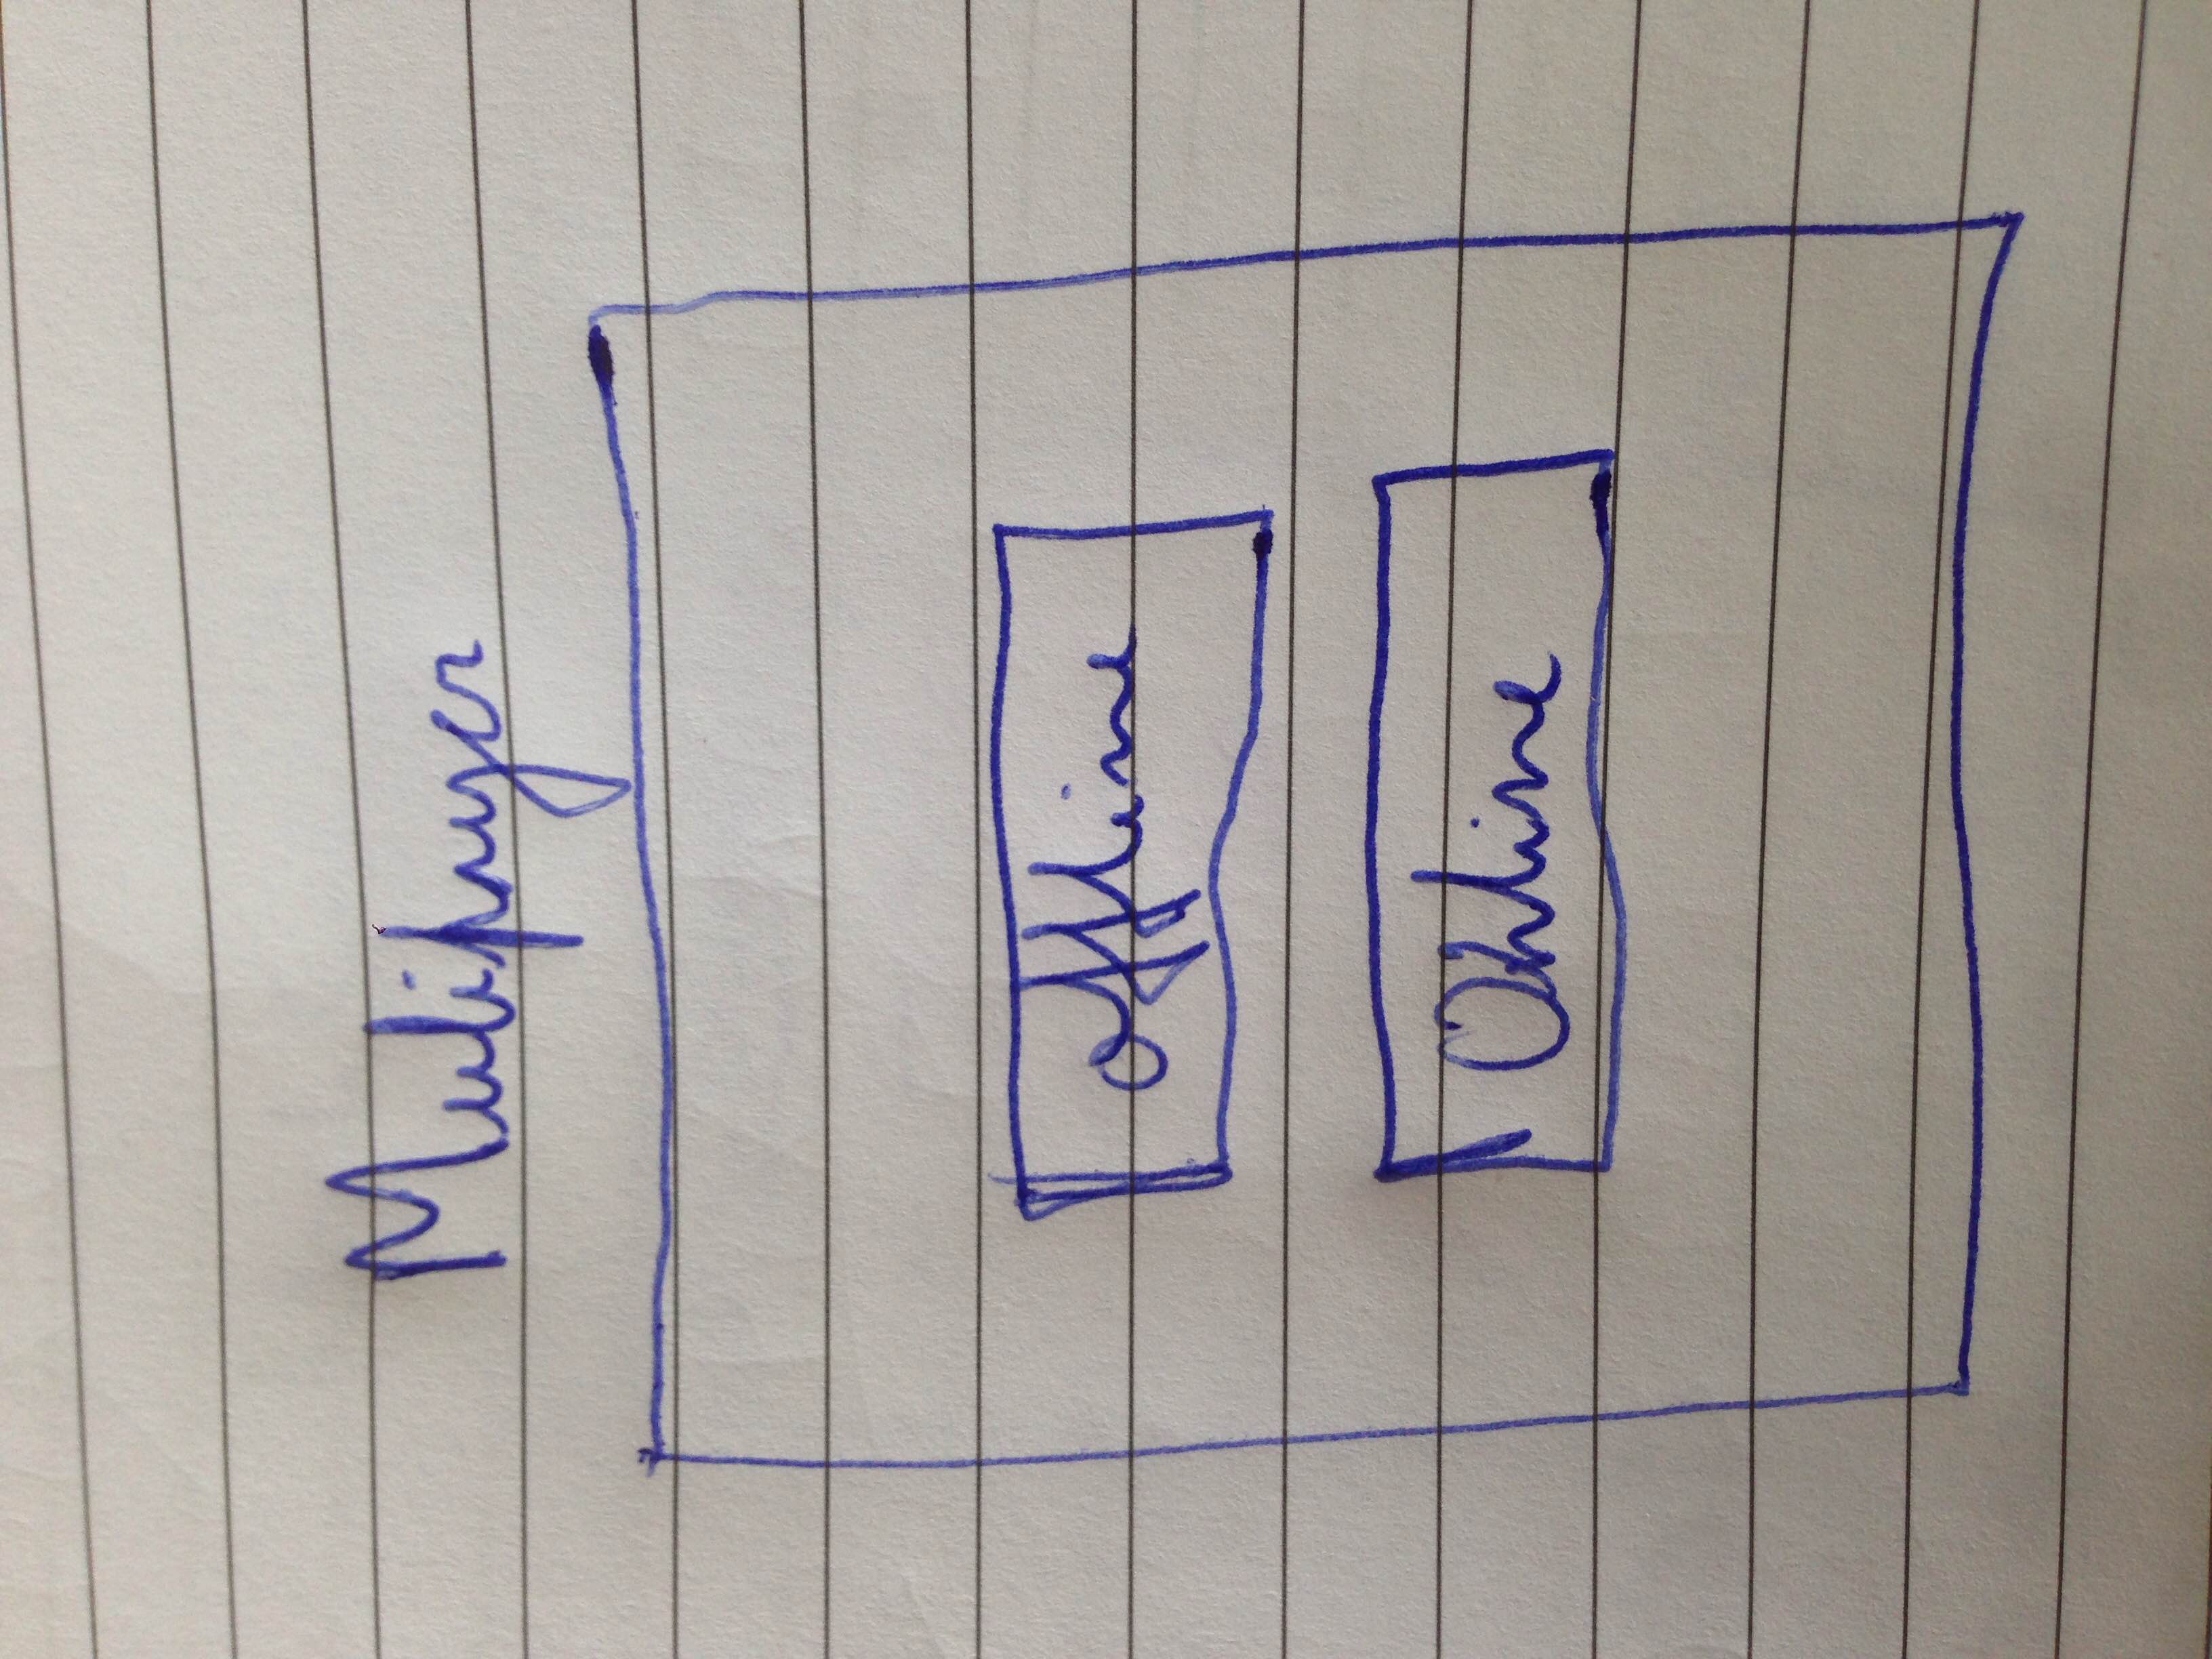 Muliplayer
offline
Online